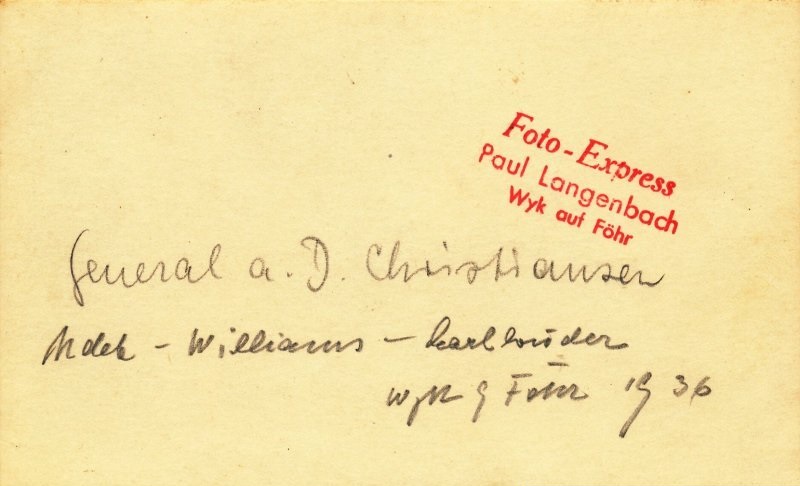 Foto-Express
Paul Langenbach
Wyk auf Föhr
General a. D. Christiansen
- Williams -
Wyk Föhr 1936